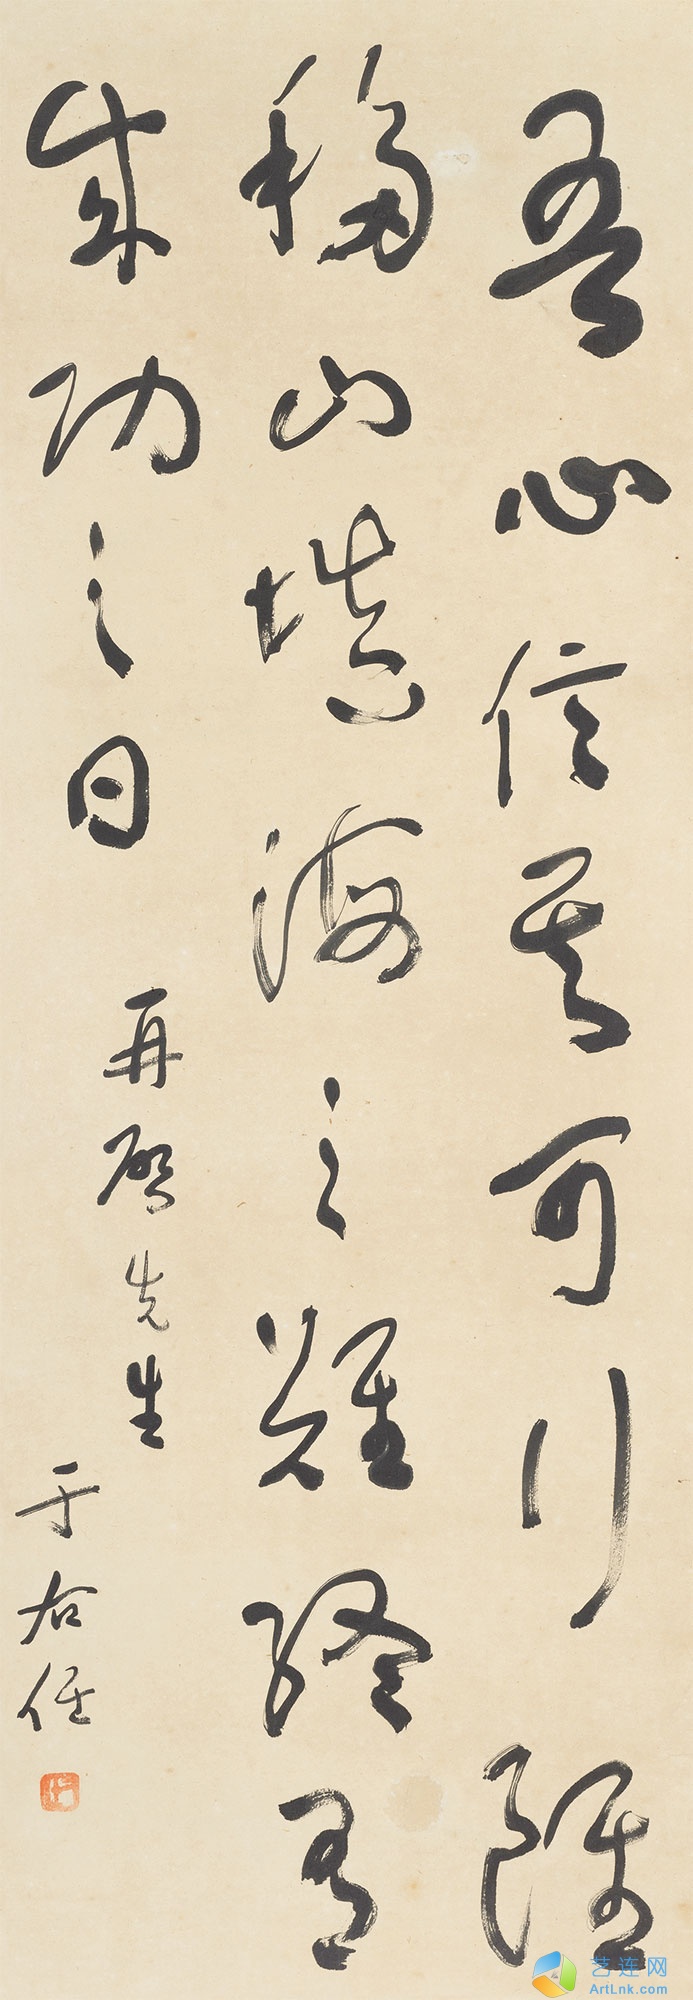 吾心信其可行雖
移山填海之難終有
成功之日
再啓先生
于右任
艺连网
ArtLnk.com